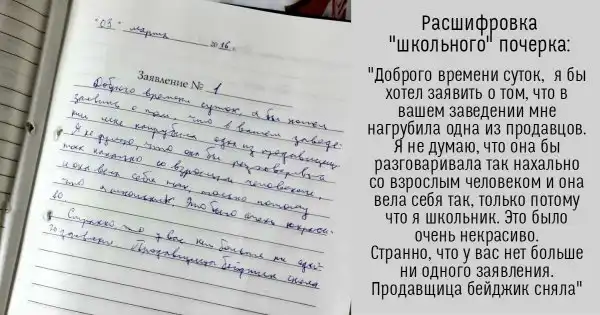 "03" марта 2016 г.
Заявление № 1
Доброго времени суток, я бы хотел
заявить о том, что в вашем заведе-
нии мне нагрубила одна из продавцов.
Я не думаю, что она бы разговаривала
так нахально со взрослым человеком,
и она вела себя так, только потому
что я школьник. Это было очень некраси-
во.
Странно, что у вас нет больше ни одно-
го заявления. Продавщица бейджик сняла
Расшифровка
"школьного" почерка:
"Доброго времени суток, я бы
хотел заявить о том, что в
вашем заведении мне
нагрубила одна из продавцов.
Я не думаю, что она бы
разговаривала так нахально
со взрослым человеком и она
вела себя так, только потому
что я школьник. Это было
очень некрасиво.
Странно, что у вас нет больше
ни одного заявления.
Продавщица бейджик сняла"